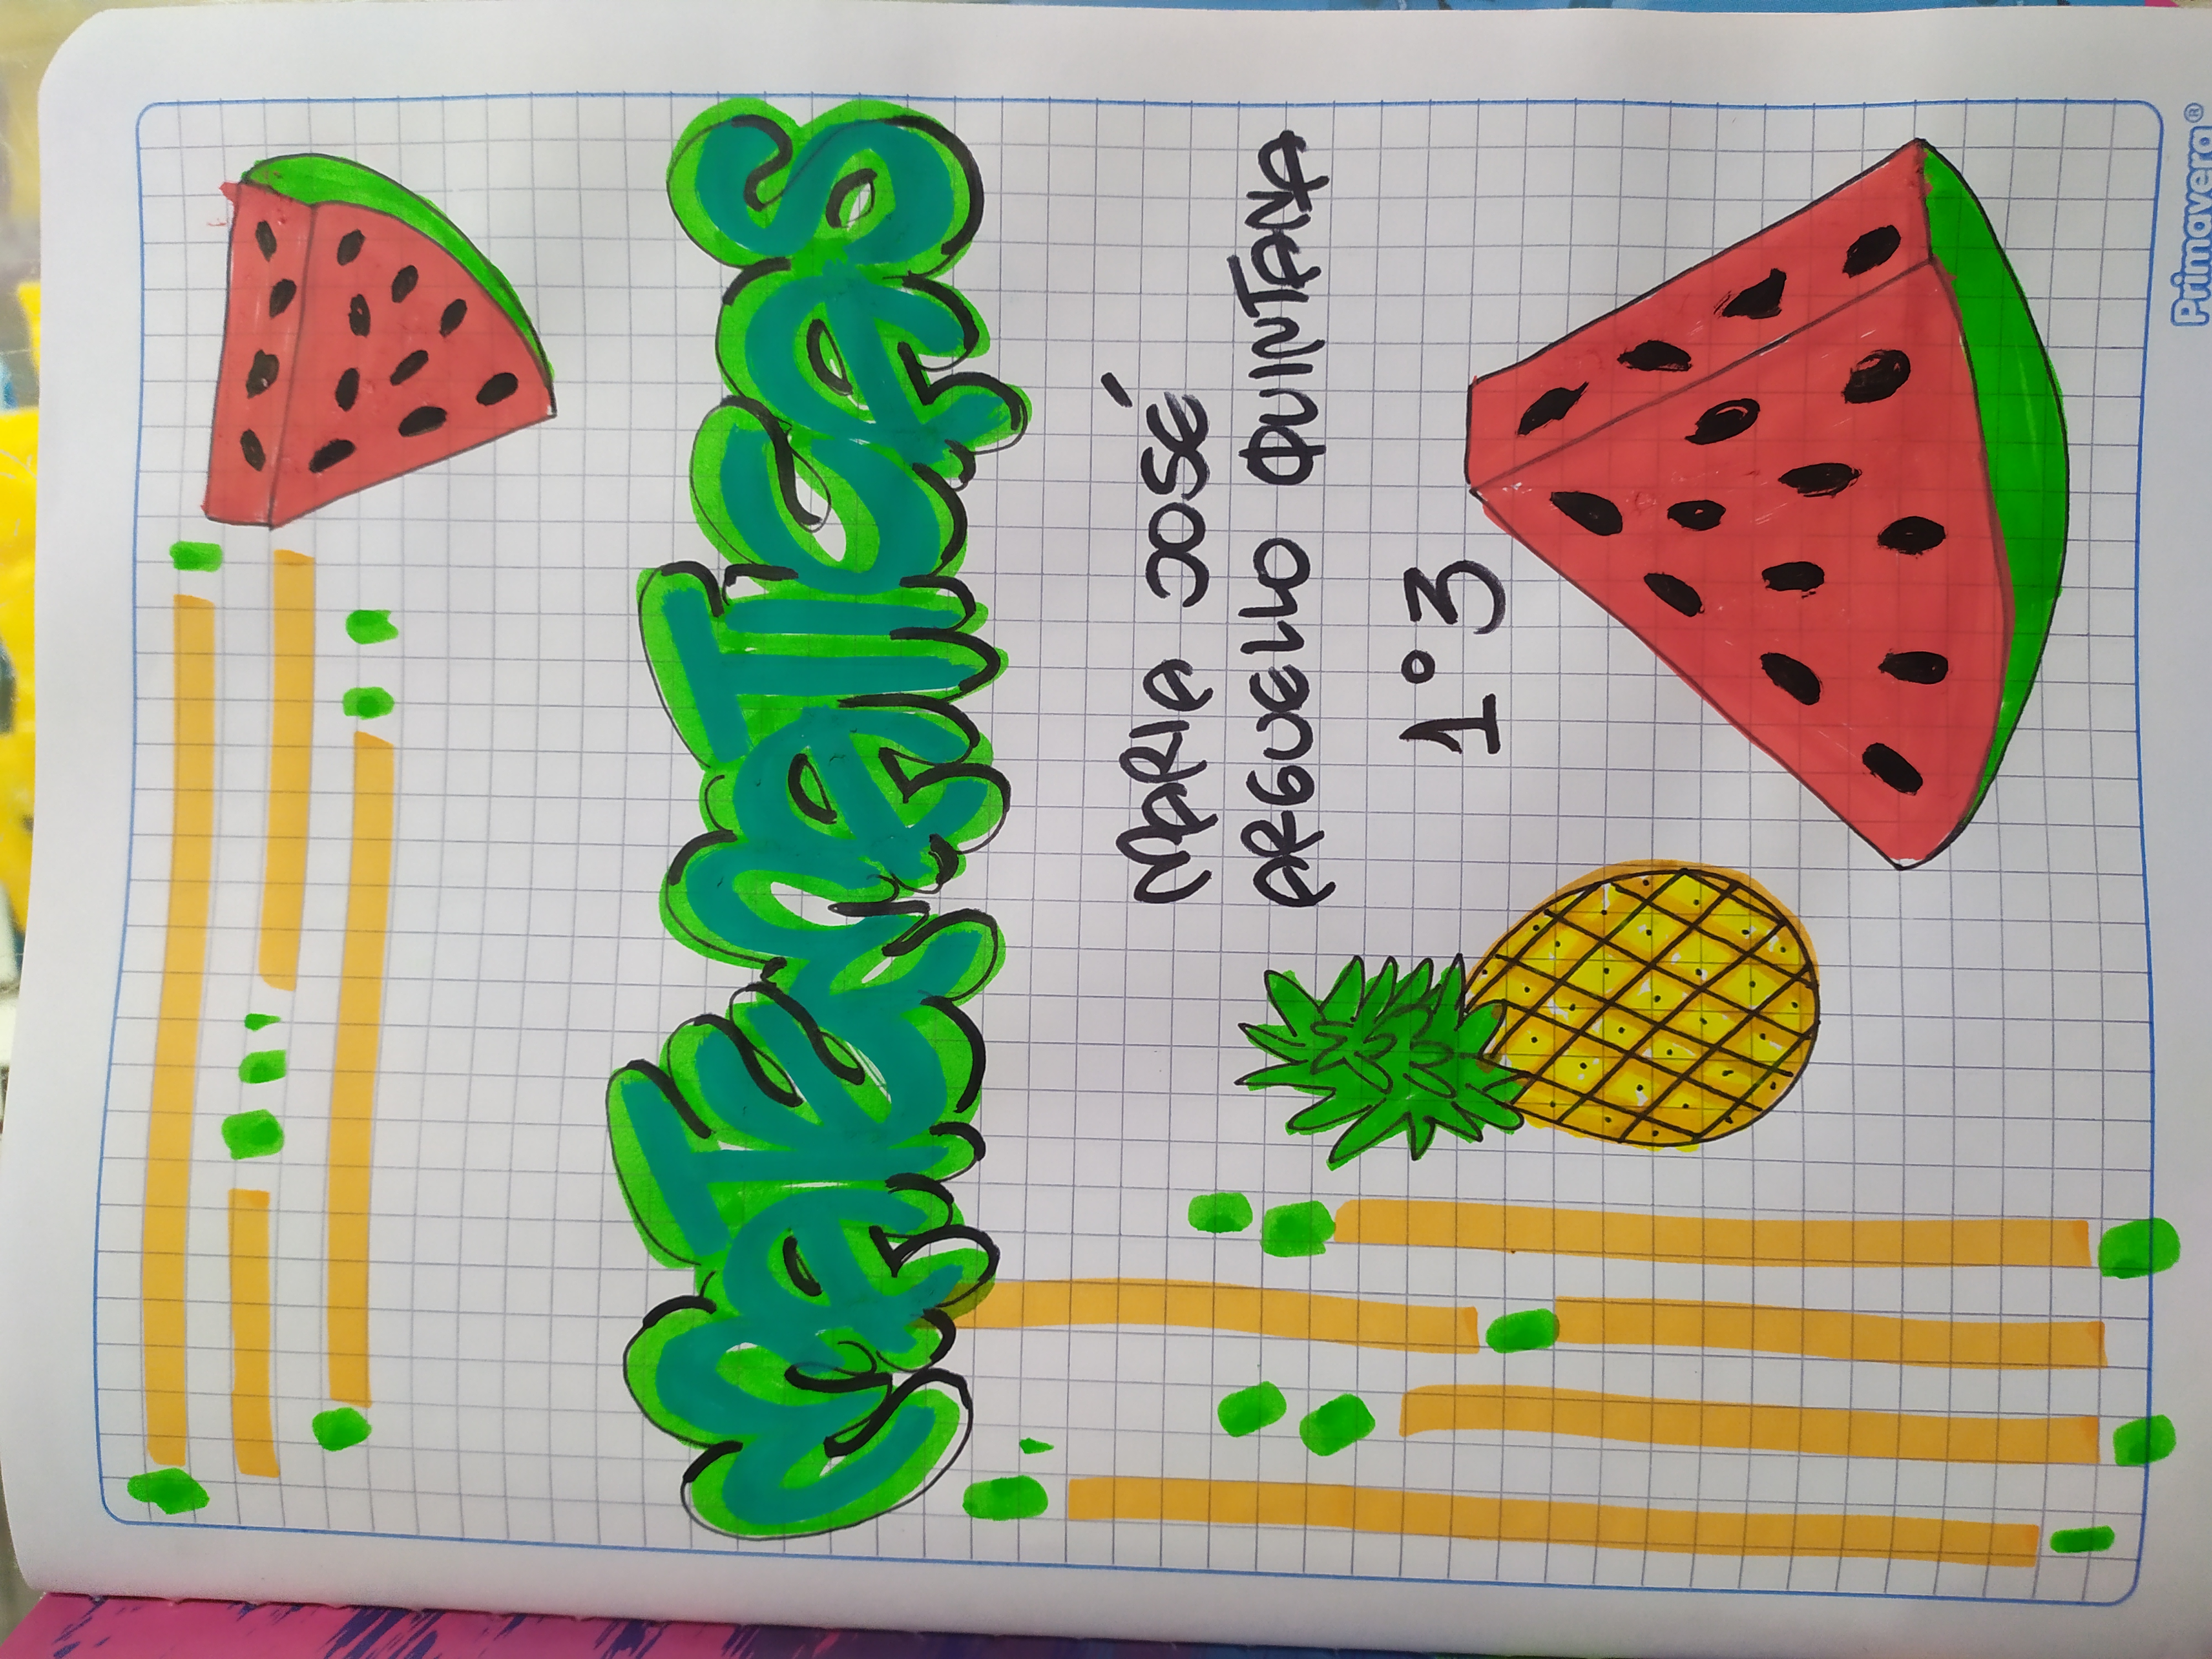 MATEMATICAS
MARIA JOSÉ
ARGUELLO QUINTANA
1°3
Primavera®